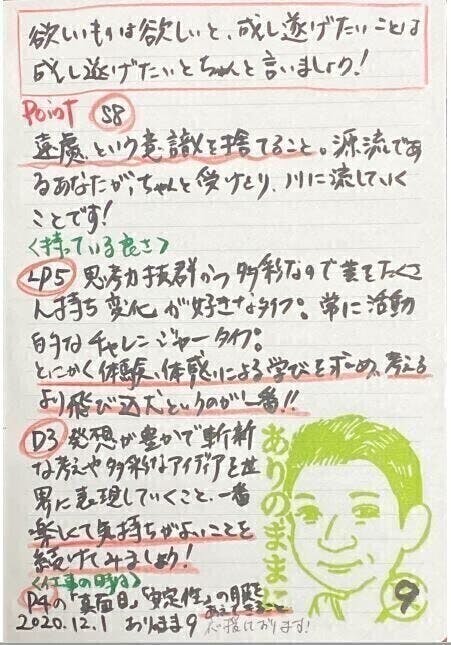 欲しいものは欲しいと、成し遂げたいことは
成し遂げたいとちゃんと言いましょう!
Point S8
遠慮、という意識を捨てること。源流であ
るあなたが、ちゃんと受けとり、川に流していく
ことです!
<持っている良さ>
LP5 思考力抜群かつ多彩なので業をたくさ
ん持ち変化が好きなタイプ。常に活動
的なチャレンジャータイプ。
とにかく体験、体感による学びを求め、考える
より飛び込えというのが一番!!
D3 発想が豊かで斬新
な考えや多彩なアイディアを世
界に表現していくこと、一番
楽しくて気持ちがよいことを
続けてみましょう!
<仕事の時は>
P4の「真面目」「安定性」の
2020.12.1 おりまま9 応援しております!
ありのままに
9